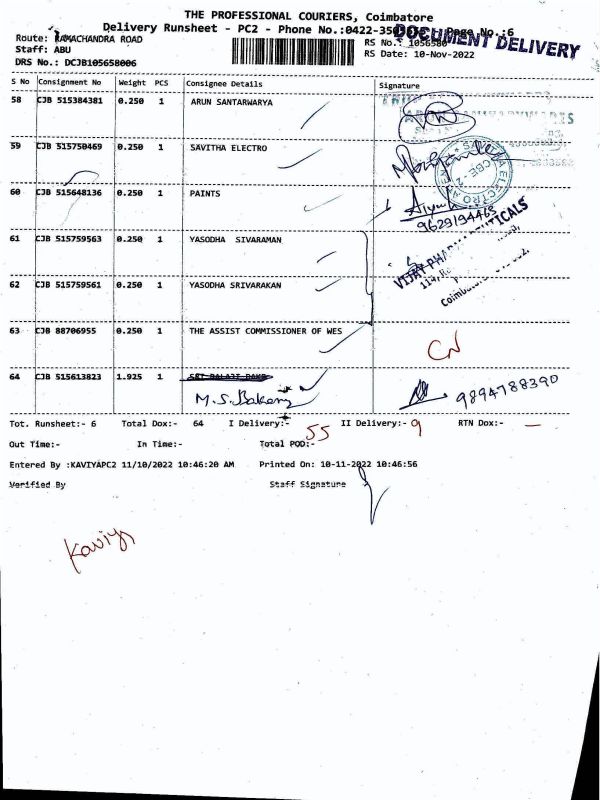 THE PROFESSIONAL COURIERS, Coimbatore
Delivery Runsheet - PC2 - Phone No.:0422-350 Page No.:6
DOCUMENT DELIVERY
Route: RAMACHANDRA ROAD RS No.: 1056580
Staff: ABU RS Date: 10-Nov-2022
DRS No.: DCJB105658006
S No Consignment No Weight PCS Consignee Details Signature
58 CJB 515384381 0.250 1 ARUN SANTARWARYA
59 CJB 515750469 0.250 1 SAVITHA ELECTRO
60 CJB 515648136 0.250 1 PAINTS
9629194468
61 CJB 515759563 0.250 1 YASODHA SIVARAMAN
VIJAY PHARMACEUTICALS
62 CJB 515759561 0.250 1 YASODHA SRIVARAKAN
63 CJB 88706955 0.250 1 THE ASSIST COMMISSIONER OF WES
CN
64 CJB 515613823 1.925 1 SRI BALAJI BAKE
M.S.Bakery 9894788390
Tot. Runsheet:- 6 Total Dox:- 64 I Delivery:- 55 II Delivery:- 9 RTN Dox:- —
Out Time:- In Time:- Total POD:-
Entered By :KAVIYAPC2 11/10/2022 10:46:20 AM Printed On: 10-11-2022 10:46:56
Verified By Staff Signature
Kaviya